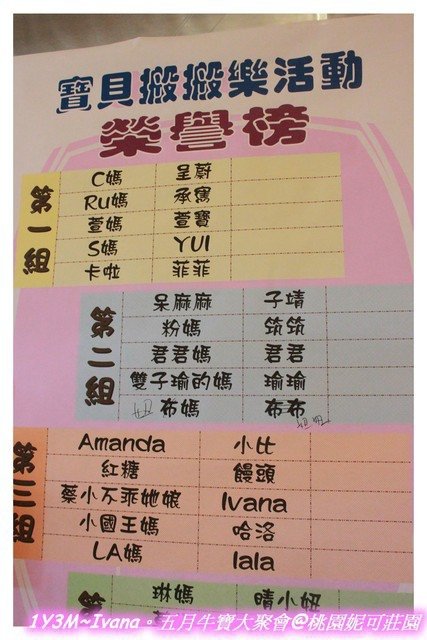 寶貝搬搬樂活動
榮譽榜
第一組
C媽 呈蔚
Ru媽 承寯
萱媽 萱寶
S媽 YUI
卡啦 菲菲
第二組
呆麻麻 子靖
粉媽 筑筑
君君媽 君君
雙子瑜的媽 瑜瑜
布媽 布布
第三組
Amanda 小比
紅糖 饅頭
蔡小不乖她娘 Ivana
小國王媽 哈洛
LA媽 lala
第
琳媽 晴小妞
1Y3M~Ivana。五月牛寶大聚會@桃園妮可莊園